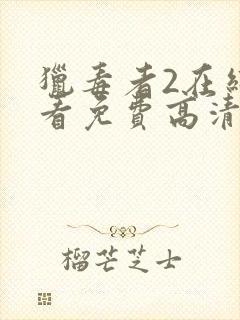 獵毒者2在線
看免費高清
榴芒芝士